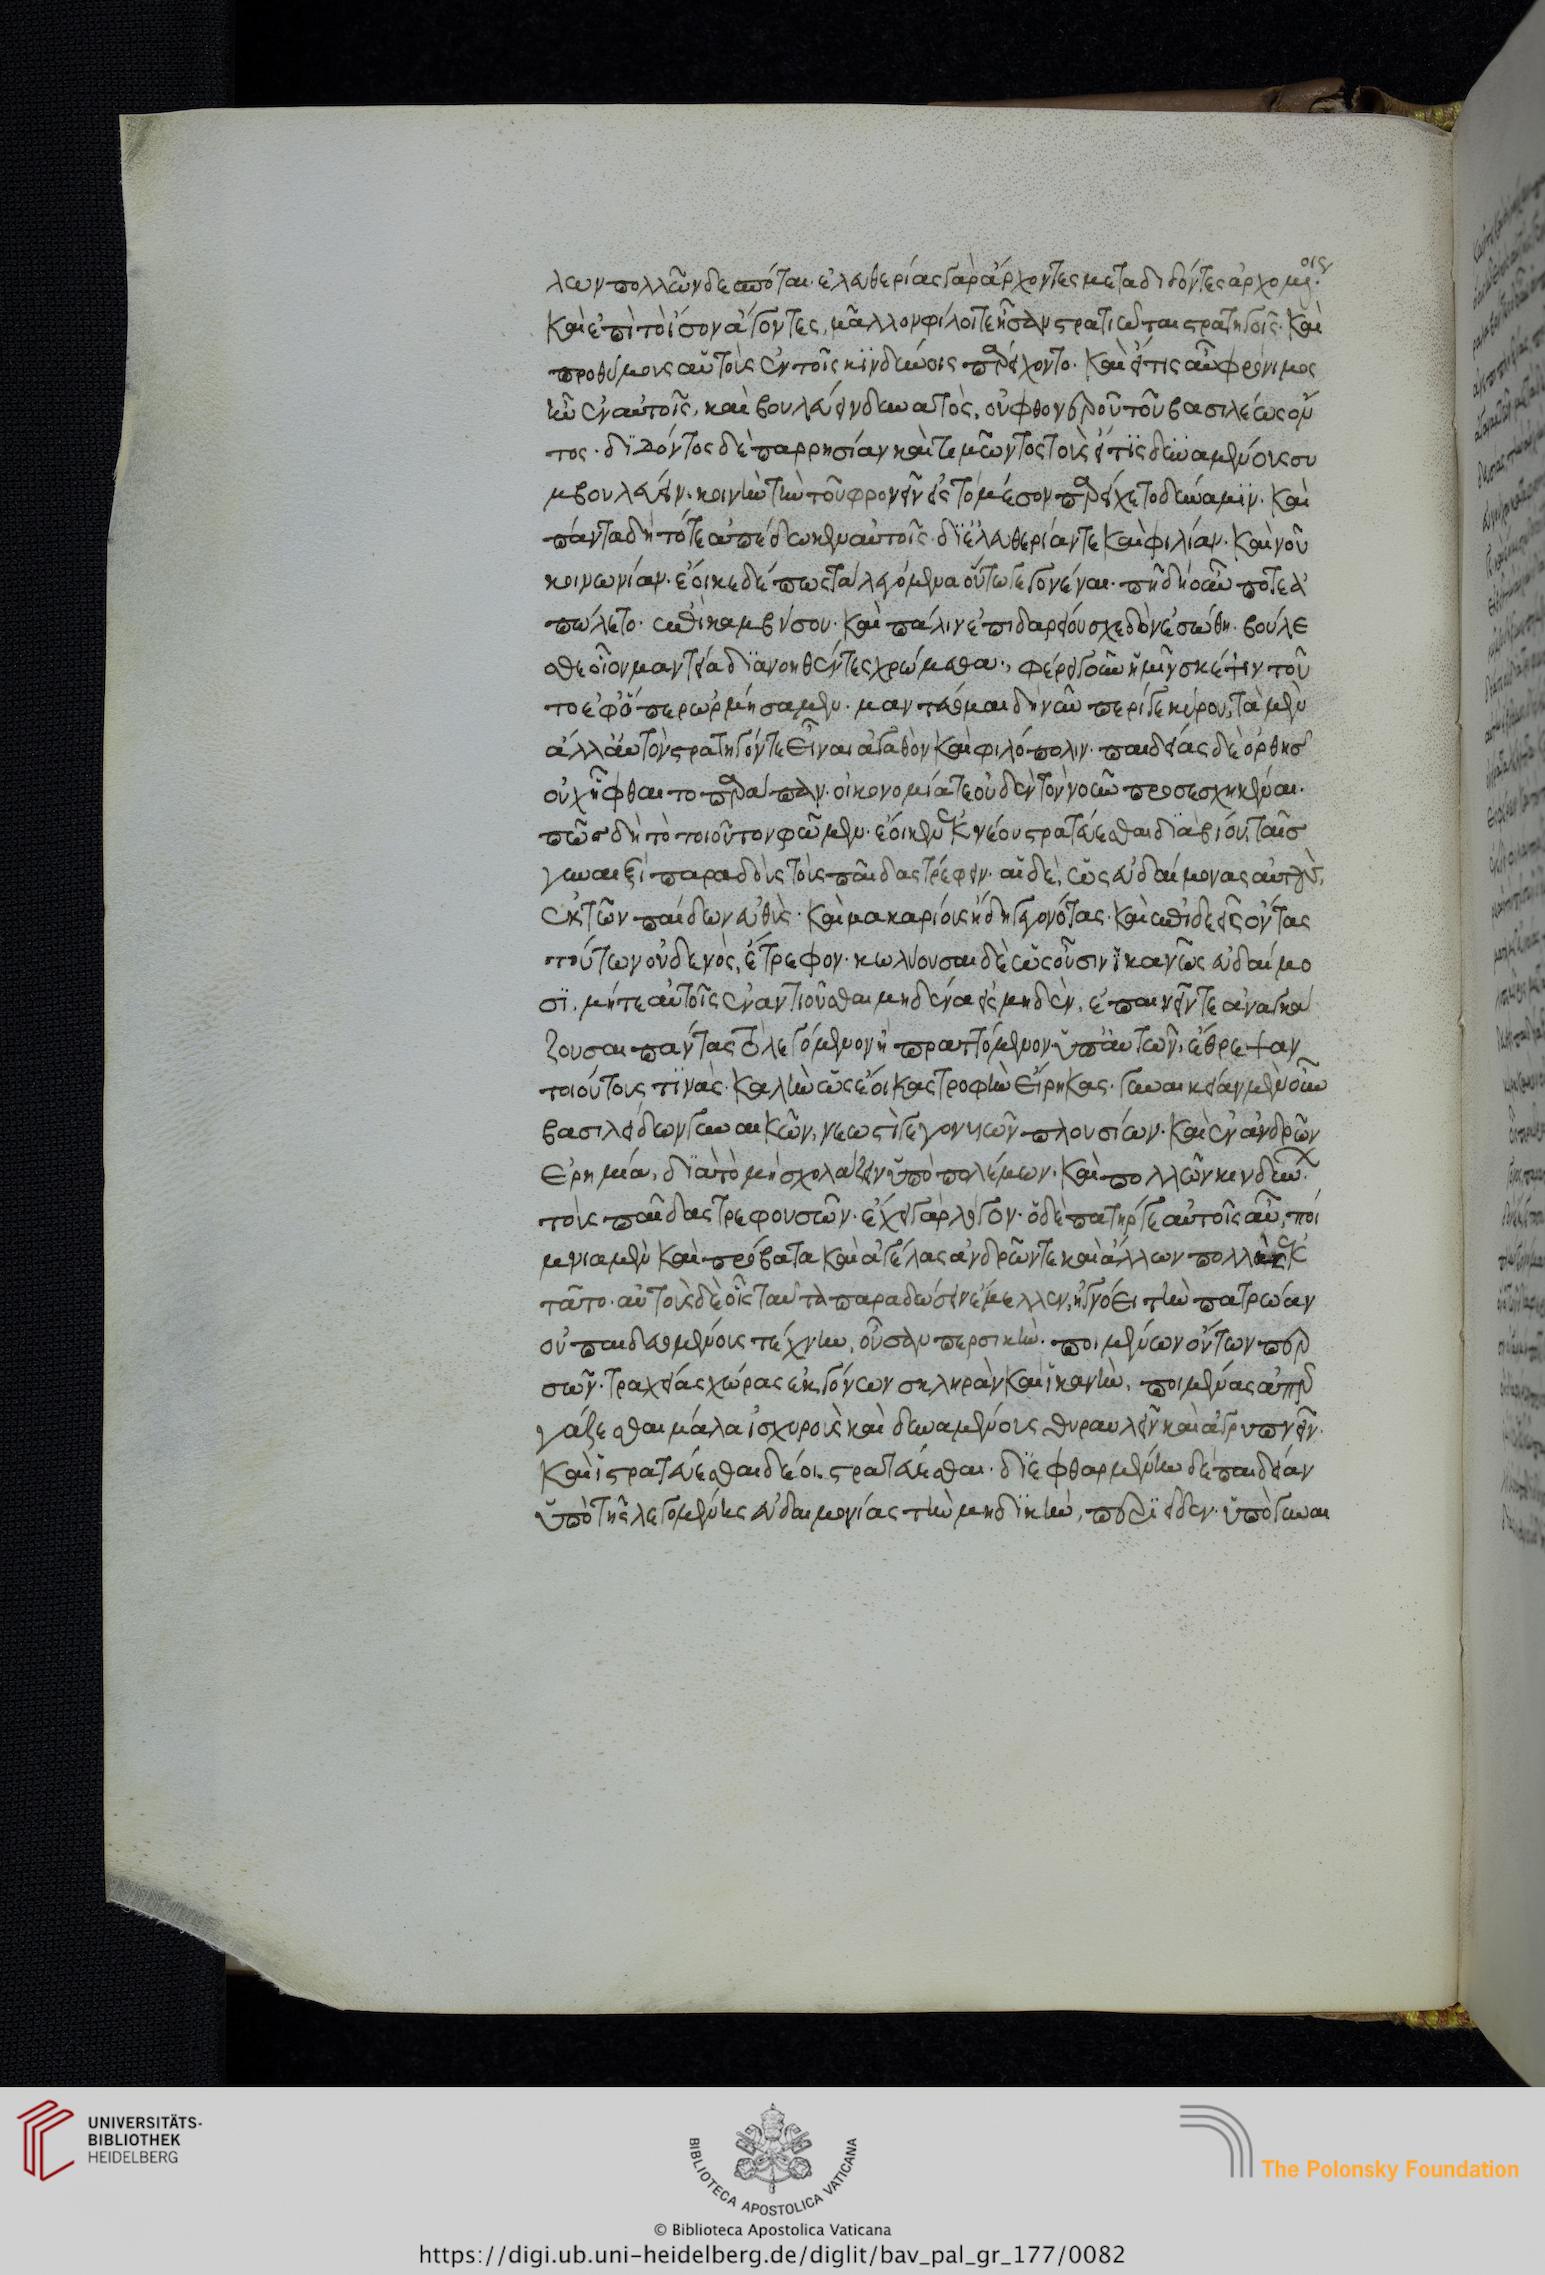 λων πολλῶν δεσπόται· ἐλευθερίας γὰρ ἄρχοντες μεταδιδόντες ἀρχομένοις·
καὶ ἐπὶ τὸ ἴσον ἄγοντες, μᾶλλον φίλοί τε ἦσαν στρατιῶται στρατηγοῖς· καὶ
προθύμους αὑτοὺς ἐν τοῖς κινδύνοις παρείχοντο· καὶ εἴ τις αὖ φρόνιμος
ἦν ἐν αὐτοῖς, καὶ βουλεύειν δυνατὸς, οὐ φθονεροῦ τοῦ βασιλέως ὄν
τος· διδόντος δὲ παρρησίαν καὶ τιμῶντος τοὺς εἴς τι δυναμένους συ
μβουλεύειν· κοινὴν τὴν τοῦ φρονεῖν εἰς τὸ μέσον παρείχετο δύναμιν· καὶ
πάντα δὴ τότε ἀπέδωκεν αὐτοῖς· δι' ἐλευθερίαν τε καὶ φιλίαν· καὶ νοῦ
κοινωνίαν· ἔοικε δέ πως τὰ λεγόμενα οὕτω γεγονέναι· πῆ δὴ οὖν ποτε ἀ
πώλετο· ἐπὶ καμβύσου· καὶ πάλιν ἐπὶ δαρείου σχεδὸν ἐσώθη· βούλε
σθε οἷον μαντείᾳ διανοηθέντες χρώμεθα·, φέρει γοῦν ἡμῖν σκέψιν τοῦ
το ἐφ' ὅπερ ὡρμήσαμεν· μαντεύομαι δὴ νῦν περί γε κύρου, τὰ μὲν
ἄλλ' αὐτὸν στρατηγόν τε εἶναι ἀγαθὸν καὶ φιλόπολιν· παιδείας δὲ ὀρθῆς
οὐχ ἧφθαι τὸ παράπαν· οἰκονομίᾳ τε οὐδὲν τὸν νοῦν προσεσχηκέναι·
πῶς δὴ τὸ τοιοῦτον φῶμεν· ἔοικεν ἐκ νέου στρατεύεσθαι διὰ βίου, ταῖς
γυναιξὶ παραδοὺς τοὺς παῖδας τρέφειν· αἱ δὲ, ὡς εὐδαίμονας αὐτοὺς,
ἐκ τῶν παίδων εὐθὺς· καὶ μακαρίους ἤδη γεγονότας· καὶ ἐπιδεεῖς ὄντας
τούτων οὐδενὸς, ἔτρεφον· κωλύουσαι δὲ ὡς οὖσιν ἱκανῶς εὐδαίμο
σι, μήτε αὐτοῖς ἐναντιοῦσθαι μηδένα εἰς μηδὲν, ἐπαινεῖν τε ἀναγκά
ζουσαι πάντας τὸ λεγόμενον ἢ πραττόμενον ὑπ' αὐτῶν, ἔθρεψαν
τοιούτους τινὰς· καλὴν ὡς ἔοικας τροφὴν εἴρηκας· γυναικείαν μὲν οὖν
βασιλίδων γυναικῶν, νεωστὶ γεγονυιῶν πλουσίων· καὶ ἐν ἀνδρῶν
ἐρημίᾳ, διὰ τὸ μὴ σχολάζειν ὑπὸ πολέμων· καὶ πολλῶν κινδύνων
τοὺς παῖδας τρεφουσῶν· ἔχει γὰρ λόγον· ὁ δὲ πατήρ γε αὐτοῖς αὖ, ποί
μνια μὲν καὶ πρόβατα καὶ ἀγέλας ἀνδρῶν τε καὶ ἄλλων πολλῶν ἐκ
τᾶτο· αὐτοὺς δὲ οἷς ταῦτα παραδώσειν ἔμελλεν, ἠγνόει τὴν πατρῴαν
οὐ παιδευομένους τέχνην, οὖσαν περσικὴν· ποιμένων ὄντων περ
σῶν· τραχείας χώρας ἐκγόνων σκληρὰν καὶ ἱκανὴν, ποιμένας ἀπερ
γάζεσθαι μάλα ἰσχυροὺς καὶ δυναμένους θυραυλεῖν καὶ ἀγρυπνεῖν·
καὶ εἰ στρατεύεσθαι δέοι, στρατεύεσθαι· διεφθαρμένην δὲ παιδείαν
ὑπὸ τῆς λεγομένης εὐδαιμονίας τὴν μηδικὴν, περιεῖδεν· ὑπὸ γυναι
UNIVERSITÄTS-
BIBLIOTHEK
HEIDELBERG
BIBLIOTECA APOSTOLICA VATICANA
The Polonsky Foundation
© Biblioteca Apostolica Vaticana
https://digi.ub.uni-heidelberg.de/diglit/bav_pal_gr_177/0082